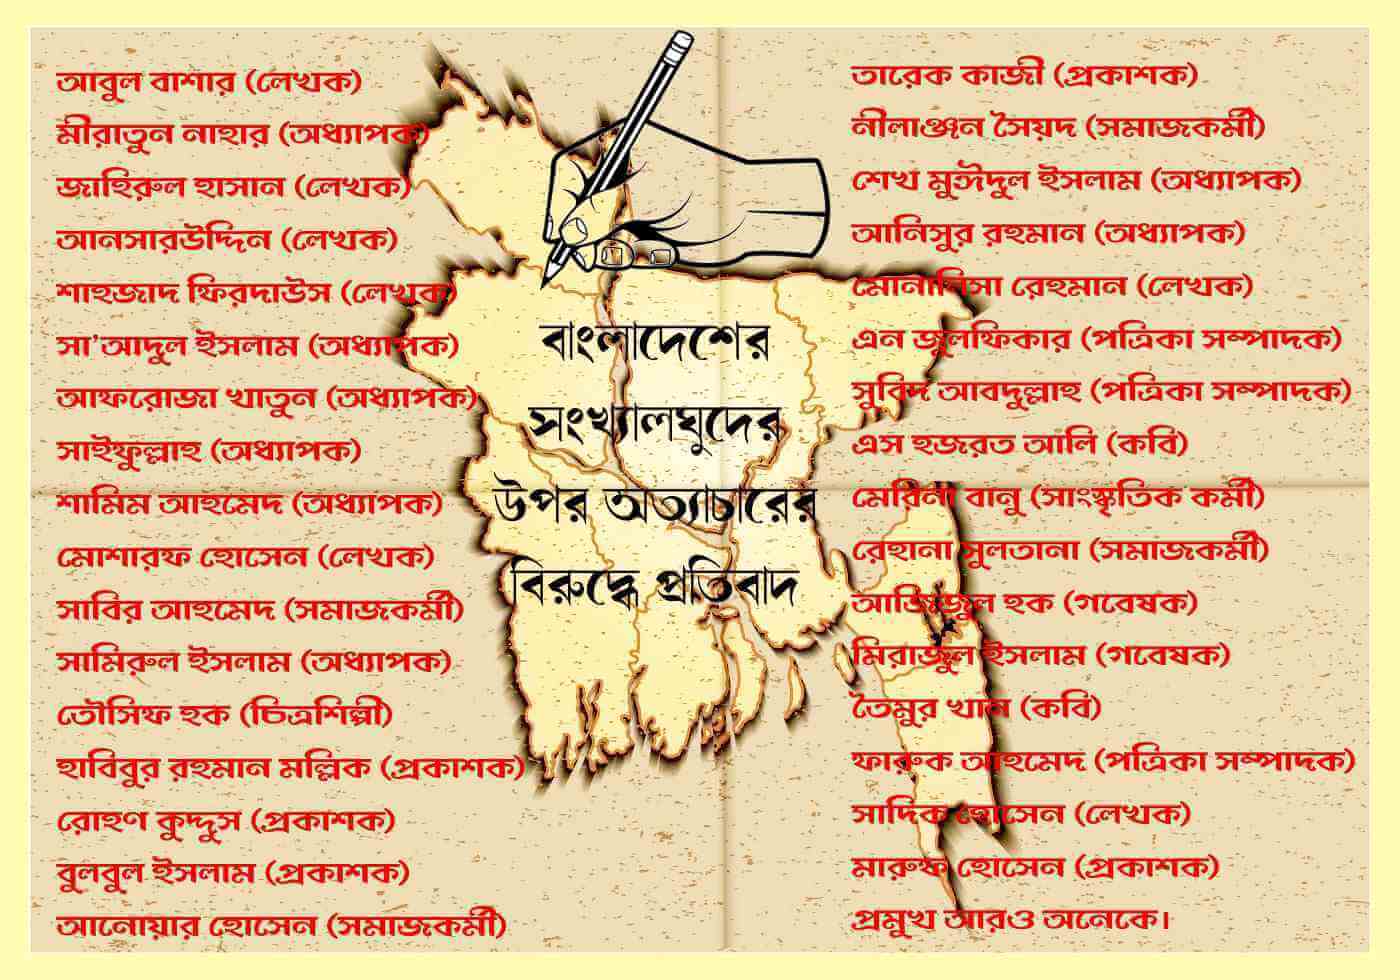 আবুল বাশার (লেখক)
মীরাতুন নাহার (অধ্যাপক)
জাহিরুল হাসান (লেখক)
আনসারউদ্দিন (লেখক)
শাহজাদ ফিরদাউস (লেখক)
সা'আদুল ইসলাম (অধ্যাপক)
আফরোজা খাতুন (অধ্যাপক)
সাইফুল্লাহ (অধ্যাপক)
শামিম আহমেদ (অধ্যাপক)
মোশারফ হোসেন (লেখক)
সাবির আহমেদ (সমাজকর্মী)
সামিরুল ইসলাম (অধ্যাপক)
তৌসিফ হক (চিত্রশিল্পী)
হাবিবুর রহমান মল্লিক (প্রকাশক)
রোহণ কুদ্দুস (প্রকাশক)
বুলবুল ইসলাম (প্রকাশক)
আনোয়ার হোসেন (সমাজকর্মী)
বাংলাদেশের
সংখ্যালঘুদের
উপর অত্যাচারের
বিরুদ্ধে প্রতিবাদ
তারেক কাজী (প্রকাশক)
নীলাঞ্জন সৈয়দ (সমাজকর্মী)
শেখ মুঈদুল ইসলাম (অধ্যাপক)
আনিসুর রহমান (অধ্যাপক)
মোনালিসা রেহমান (লেখক)
এন জুলফিকার (পত্রিকা সম্পাদক)
সুবিদ আবদুল্লাহ (পত্রিকা সম্পাদক)
এস হজরত আলি (কবি)
মেরিনা বানু (সাংস্কৃতিক কর্মী)
রেহানা সুলতানা (সমাজকর্মী)
আজিজুল হক (গবেষক)
মিরাজুল ইসলাম (গবেষক)
তৈমুর খান (কবি)
ফারুক আহমেদ (পত্রিকা সম্পাদক)
সাদিক হোসেন (লেখক)
মারুফ হোসেন (প্রকাশক)
প্রমুখ আরও অনেকে।